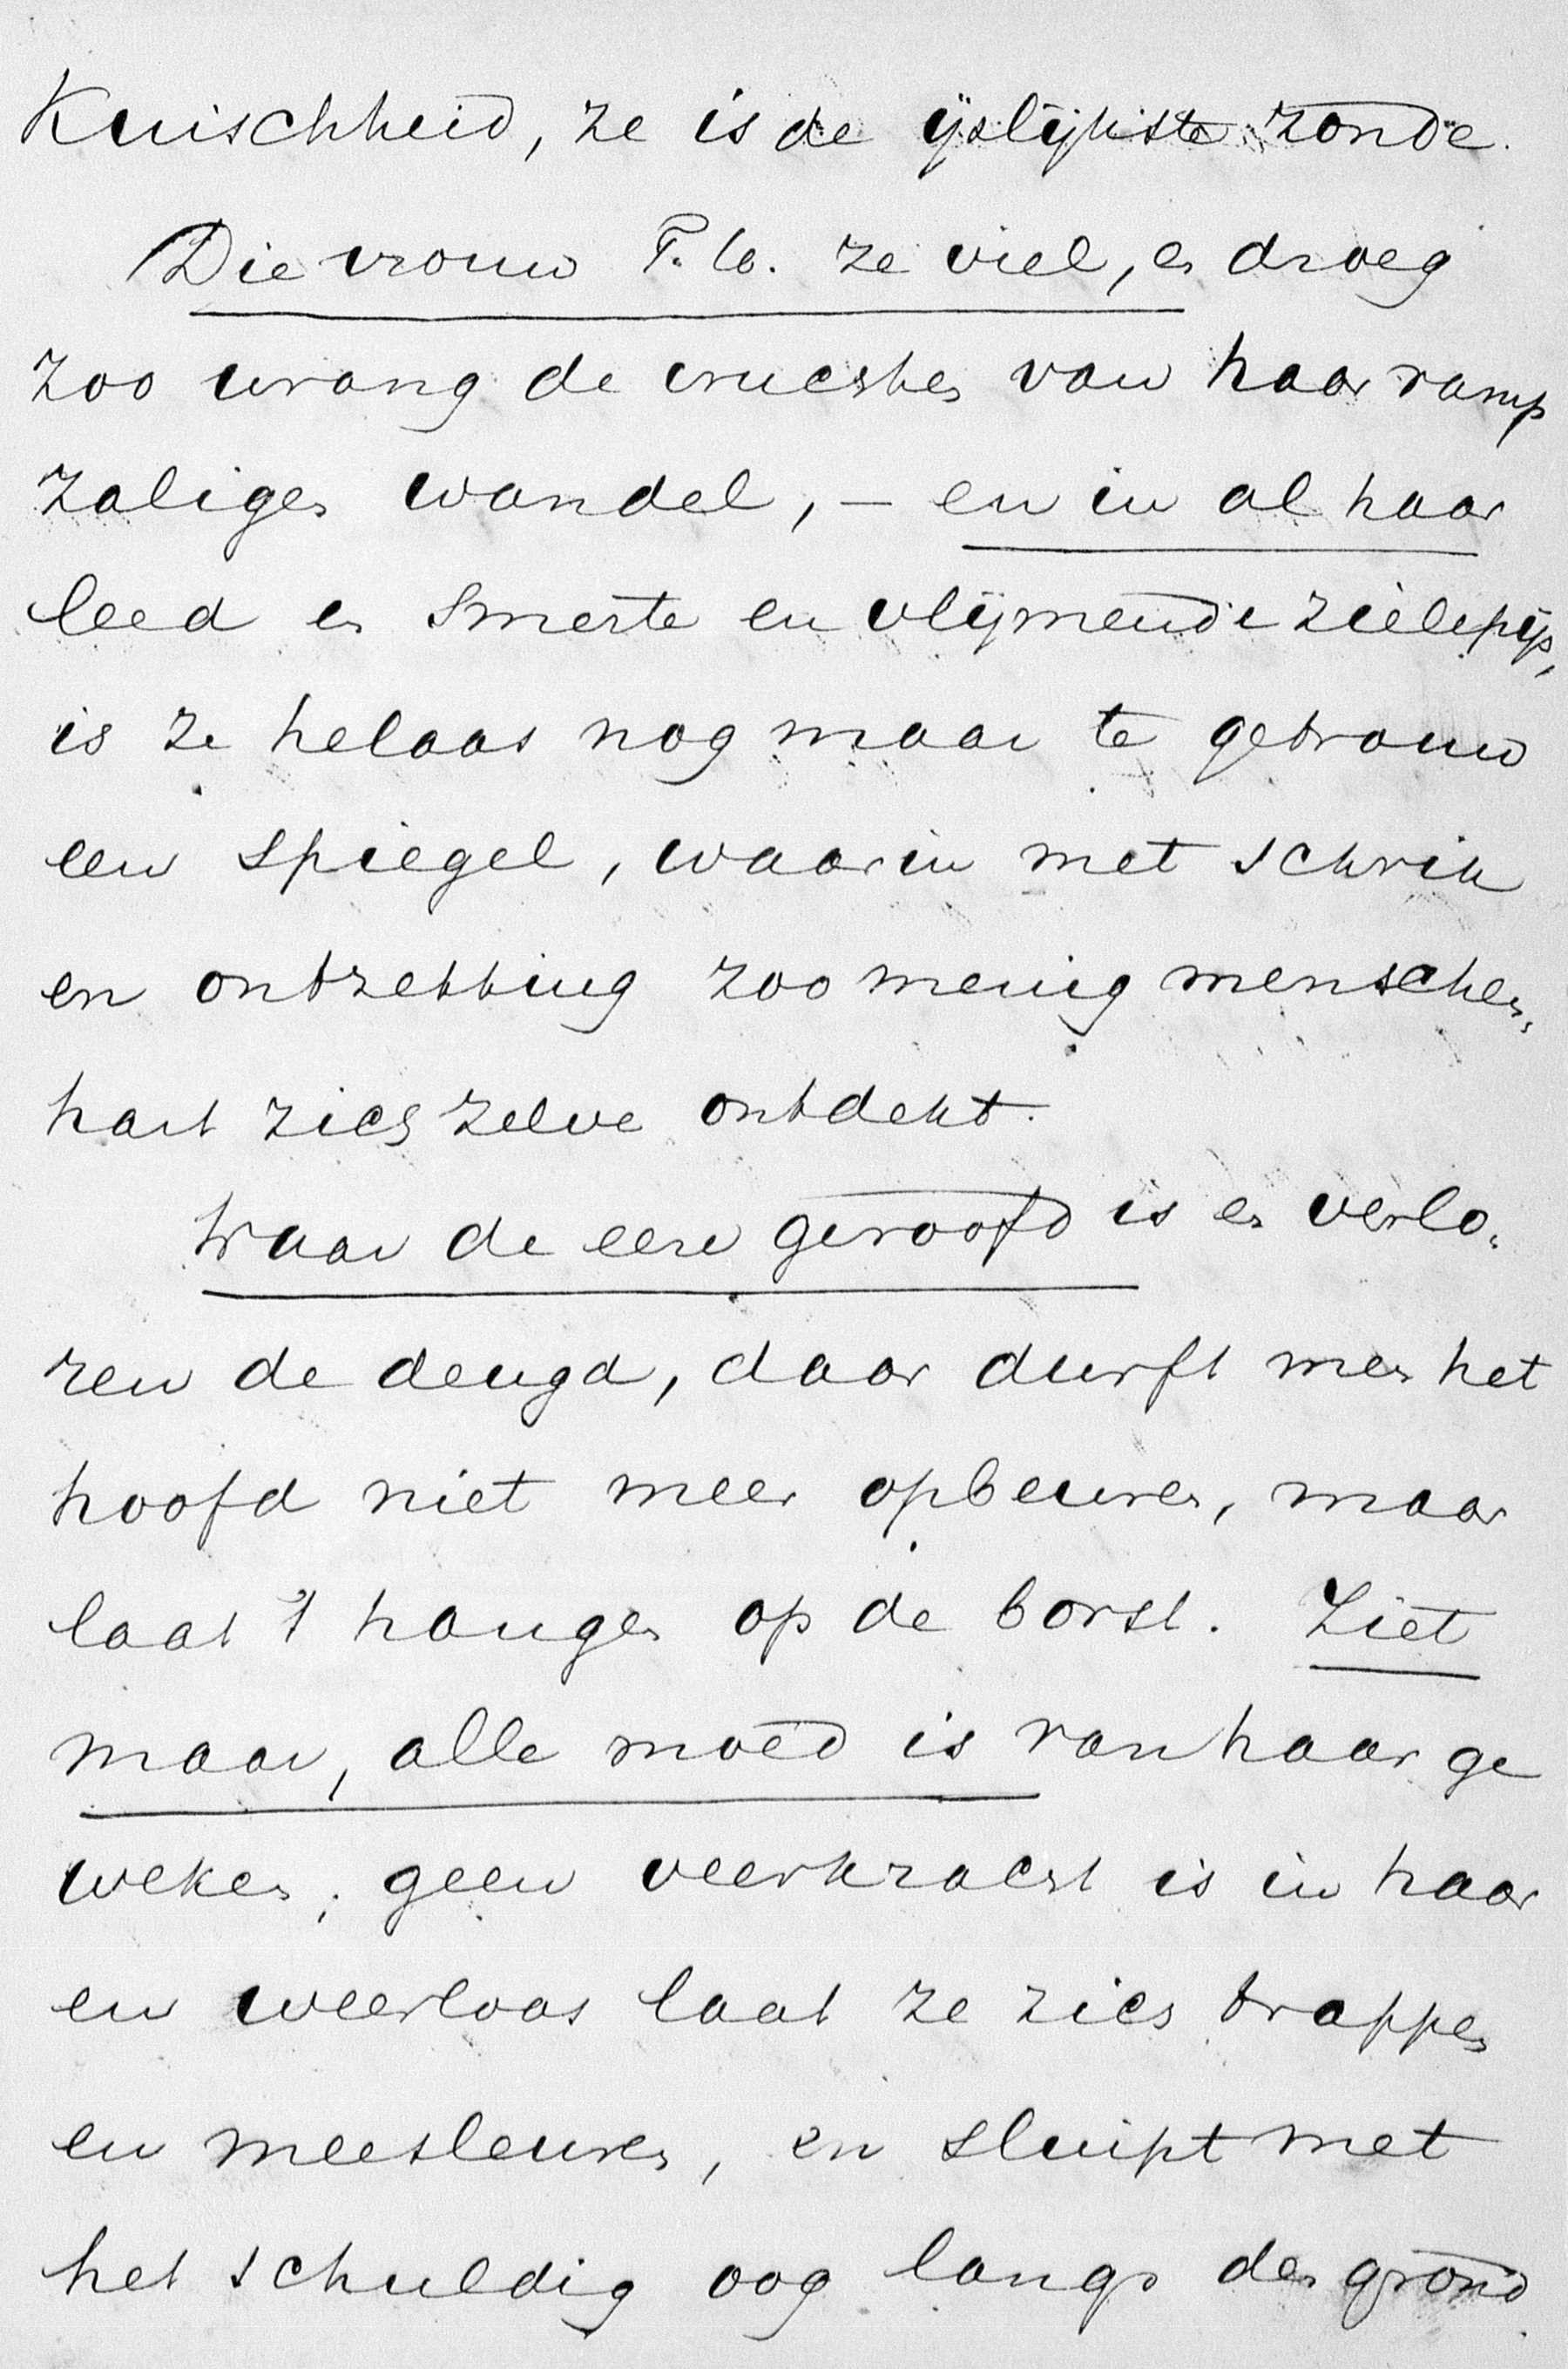 Kuischheid, ze is de ijslijkste zonde.
Die vrouw T. C. ze viel, en droeg
zoo wrang de vruchten van haar ramp
zaligen wandel, — en in al haar
leed en smerte en vlijmende zielepijn,
is ze helaas nog maar te getrouw
een spiegel, waarin met schrik
en ontzetting zoo menig menschen-
hart zich zelve ontdekt.
Waar de eere geroofd is en verlo-
ren de deugd, daar durft men het
hoofd niet meer opbeuren, maar
laat 't hangen op de borst. Ziet
maar, alle moed is van haar ge
weken; geen veerkracht is in haar
en weerloos laat ze zich trappen
en meesleuren, en sluipt met
het schuldig oog langs den grond